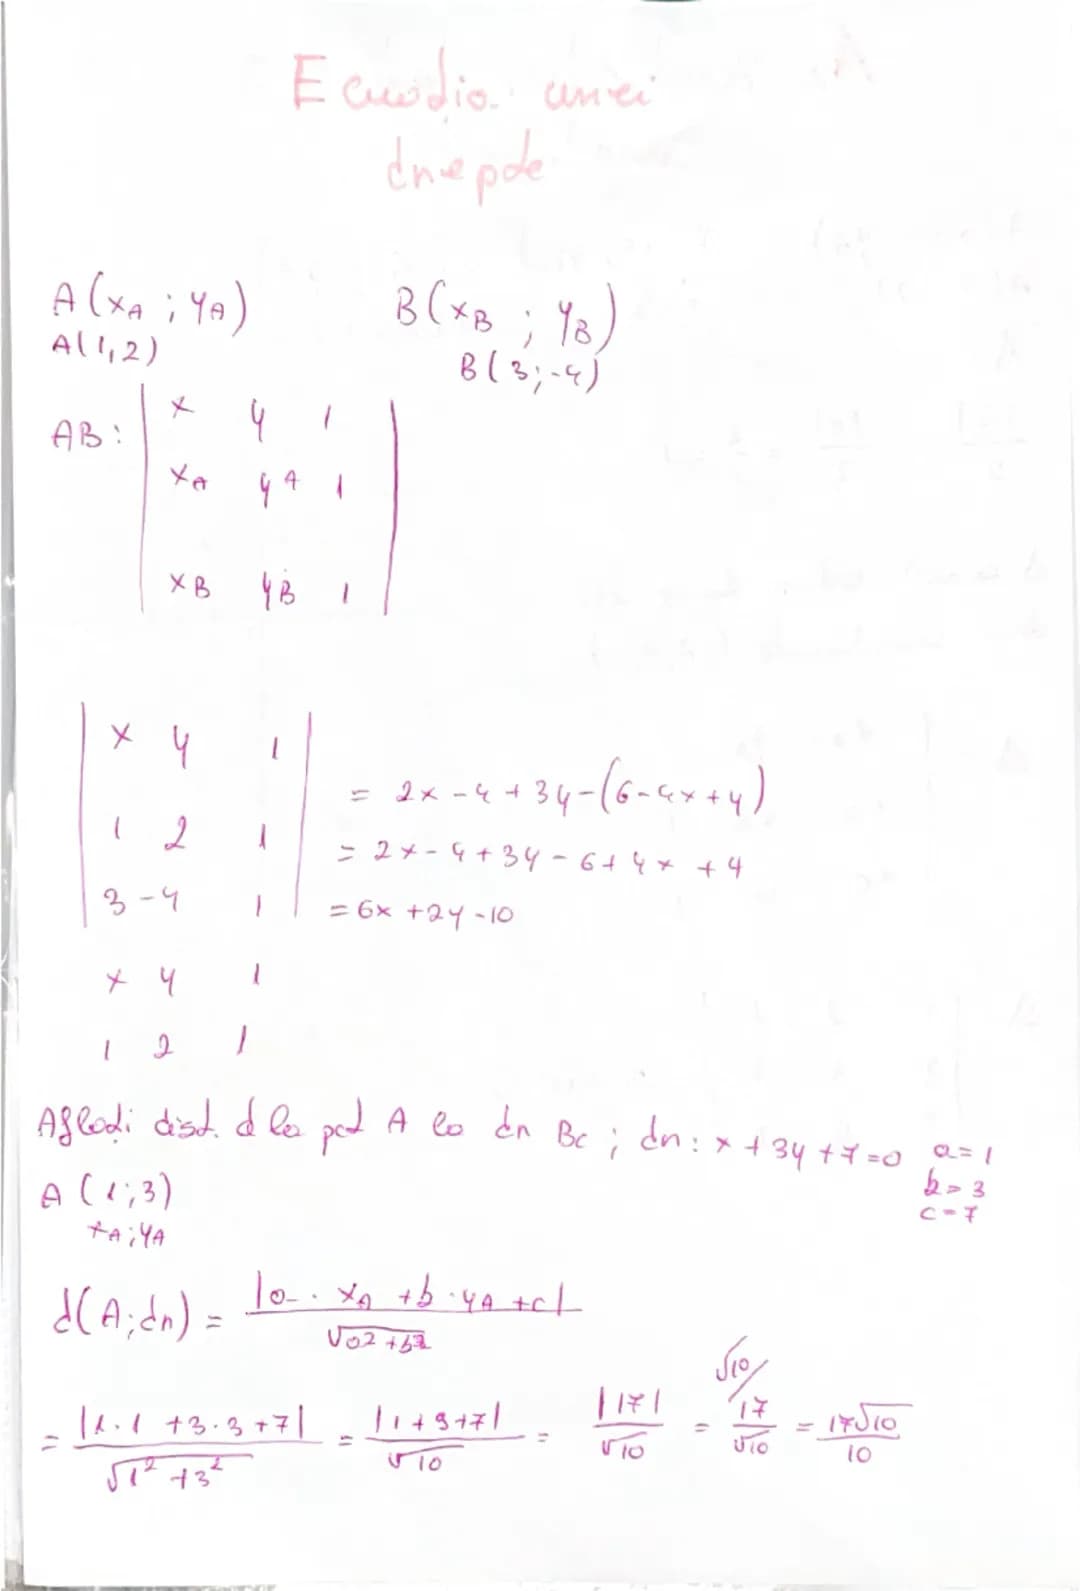 Ecuația unei
drepte
A(xA ; yA) B(xB ; yB)
A(1,2) B(3;-4)
AB: | x y 1 |
| xA yA 1 |
| xB yB 1 |
| x y 1 |
| 1 2 1 | = 2x - 4 + 3y - (6 - 4x + y)
| 3 -4 1 | = 2x - 4 + 3y - 6 + 4x + y
= 6x + 2y - 10
x y 1
1 2 1
Aflați dist. d la pct A la dr BC ; dr: x + 3y + 7 = 0 a = 1
A (1;3) b = 3
xA;yA c = 7
d(A;dr) = |a · xA + b · yA + c| / √a² + b²
= |1·1 + 3·3 + 7| / √1² + 3² = |1 + 9 + 7| / √10 = |17| / √10 = √10/ 17 / √10 = 17√10 / 10